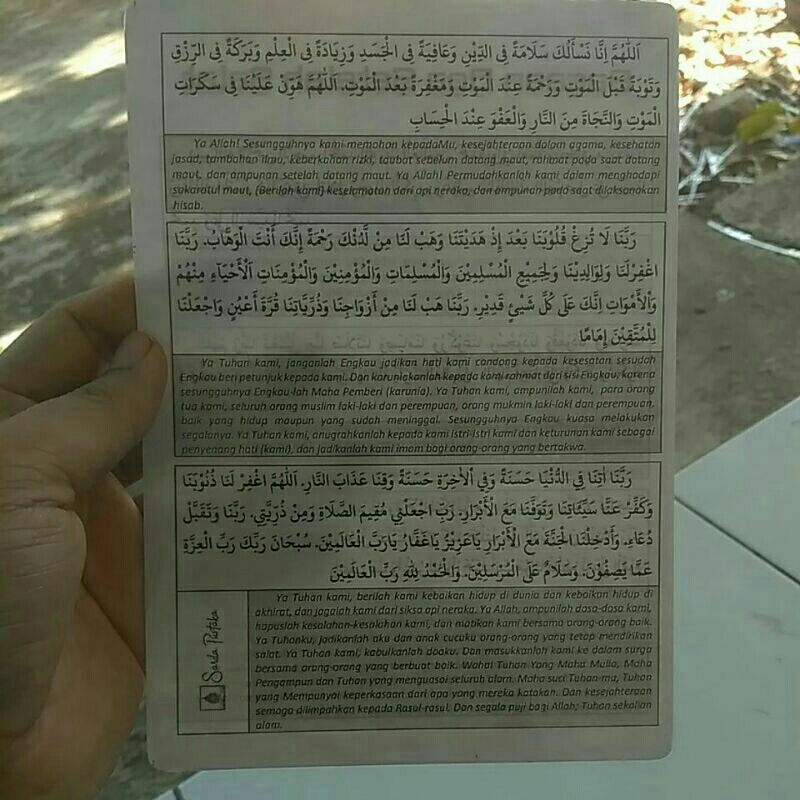 اَللّٰهُمَّ اِنَّا نَسْأَلُكَ سَلَامَةً فِى الدِّيْنِ وَعَافِيَةً فِى الْجَسَدِ وَزِيَادَةً فِى الْعِلْمِ وَبَرَكَةً فِى الرِّزْقِ
وَتَوْبَةً قَبْلَ الْمَوْتِ وَرَحْمَةً عِنْدَ الْمَوْتِ وَمَغْفِرَةً بَعْدَ الْمَوْتِ. اَللّٰهُمَّ هَوِّنْ عَلَيْنَا فِى سَكَرَاتِ
الْمَوْتِ وَالنَّجَاةَ مِنَ النَّارِ وَالْعَفْوَ عِنْدَ الْحِسَابِ
Ya Allah! Sesungguhnya kami memohon kepadaMu, kesejahteraan dalam agama, kesehatan
jasad, tambahan ilmu, keberkahan rizki, taubat sebelum datang maut, rahmat pada saat datang
maut, dan ampunan setelah datang maut. Ya Allah! Permudahkanlah kami dalam menghadapi
sakaratul maut, (Berilah kami) keselamatan dari api neraka, dan ampunan pada saat dilaksanakan
hisab.
رَبَّنَا لَا تُزِغْ قُلُوْبَنَا بَعْدَ اِذْ هَدَيْتَنَا وَهَبْ لَنَا مِنْ لَّدُنْكَ رَحْمَةً اِنَّكَ أَنْتَ الْوَهَّابُ. رَبَّنَا
اغْفِرْلَنَا وَلِوَالِدِيْنَا وَلِجَمِيْعِ الْمُسْلِمِيْنَ وَالْمُسْلِمَاتِ وَالْمُؤْمِنِيْنَ وَالْمُؤْمِنَاتِ اَلْأَحْيَآءِ مِنْهُمْ
وَالْأَمْوَاتِ اِنَّكَ عَلَى كُلِّ شَيْئٍ قَدِيْرٍ. رَبَّنَا هَبْ لَنَا مِنْ أَزْوَاجِنَا وَذُرِّيَّاتِنَا قُرَّةَ أَعْيُنٍ وَاجْعَلْنَا
لِلْمُتَّقِيْنَ إِمَامًا
Ya Tuhan kami, janganlah Engkau jadikan hati kami condong kepada kesesatan sesudah
Engkau beri petunjuk kepada kami. Dan karuniakanlah kepada kami rahmat dari sisi Engkau, karena
sesungguhnya Engkau-lah Maha Pemberi (karunia). Ya Tuhan kami, ampunilah kami, para orang
tua kami, seluruh orang muslim laki-laki dan perempuan, orang mukmin laki-laki dan perempuan,
baik yang hidup maupun yang sudah meninggal. Sesungguhnya Engkau kuasa melakukan
segalanya. Ya Tuhan kami, anugrahkanlah kepada kami istri-istri kami dan keturunan kami sebagai
penyenang hati (kami), dan jadikanlah kami imam bagi orang-orang yang bertakwa.
رَبَّنَا اٰتِنَا فِي الدُّنْيَا حَسَنَةً وَفِي الْأَخِرَةِ حَسَنَةً وَقِنَا عَذَابَ النَّارِ. اَللّٰهُمَّ اغْفِرْ لَنَا ذُنُوْبَنَا
وَكَفِّرْ عَنَّا سَيِّئَاتِنَا وَتَوَفَّنَا مَعَ الْأَبْرَارِ. رَبِّ اجْعَلْنِي مُقِيْمَ الصَّلَاةِ وَمِنْ ذُرِّيَّتِي. رَبَّنَا وَتَقَبَّلْ
دُعَاءِ. وَأَدْخِلْنَا الْجَنَّةَ مَعَ الْأَبْرَارِ يَاعَزِيْزُ يَاغَفَّارُ يَارَبَّ الْعَالَمِيْنَ. سُبْحَانَ رَبِّكَ رَبِّ الْعِزَّةِ
عَمَّا يَصِفُوْنَ. وَسَلَامٌ عَلَى الْمُرْسَلِيْنَ. وَالْحَمْدُ لِلّٰهِ رَبِّ الْعَالَمِيْنَ
Ya Tuhan kami, berilah kami kebaikan hidup di dunia dan kebaikan hidup di
akhirat, dan jagalah kami dari siksa api neraka. Ya Allah, ampunilah dosa-dosa kami,
hapuslah kesalahan-kesalahan kami, dan matikan kami bersama orang-orang baik.
Ya Tuhanku, jadikanlah aku dan anak cucuku orang-orang yang tetap mendirikan
salat. Ya Tuhan kami, kabulkanlah doaku. Dan masukkanlah kami ke dalam surga
bersama orang-orang yang berbuat baik. Wahai Tuhan Yang Maha Mulia, Maha
Pengampun dan Tuhan yang menguasai seluruh alam. Maha suci Tuhan-mu, Tuhan
yang Mempunyai keperkasaan dari apa yang mereka katakan. Dan kesejahteraan
semoga dilimpahkan kepada Rasul-rasul. Dan segala puji bagi Allah; Tuhan sekalian
alam.